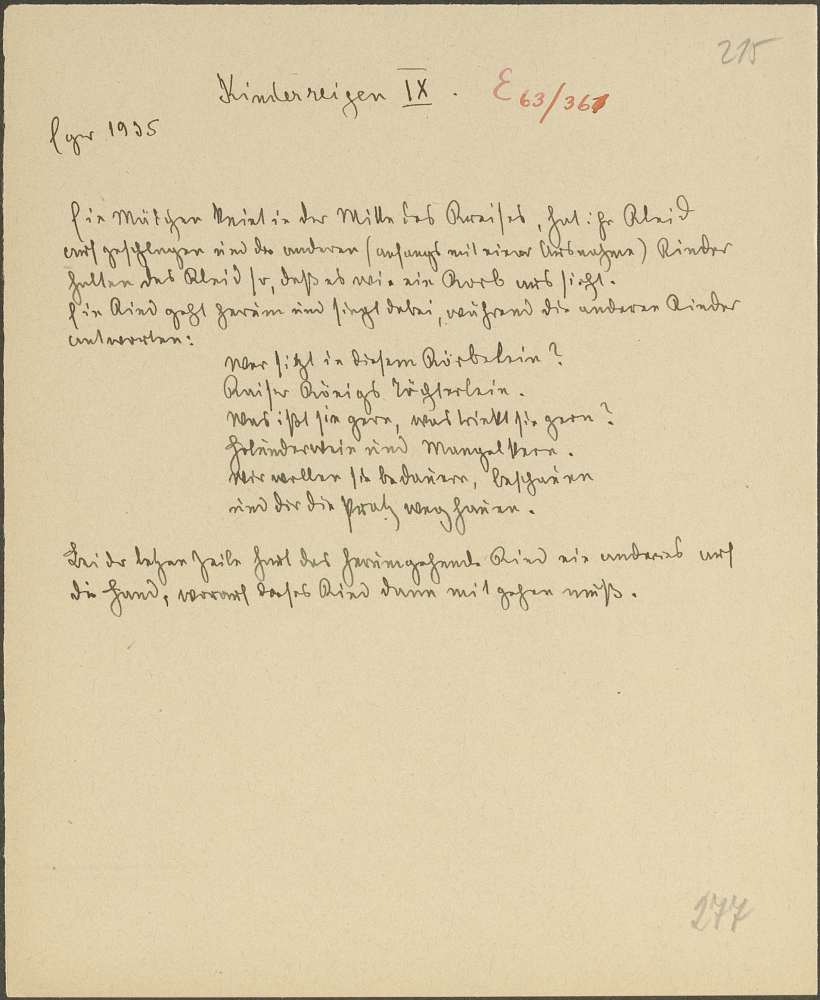 215
Kinderreigen IX. E63/361
Eger 1935
Ein Mädchen kniet in der Mitte des Kreises, hat ihr Kleid
aufgeschlagen und die anderen (anfangs mit einer Ausnahme) Kinder
halten das Kleid so, daß es wie ein Korb aussieht.
Ein Kind geht herum und singt dabei, während die anderen Kinder
antworten:
Wer sitzt in diesem Körbelein?
Kaiser Königs Töchterlein.
Was ißt sie gern, was trinkt sie gern?
Holunderwein und Mangelkern.
Wir wollen sie bedauern, beschauen
und dir die Pratz weghauen.
Bei der letzen Zeile haut das herumgehende Kind ein anderes auf
die Hand, worauf dieses Kind dann mitgehen muß.
277